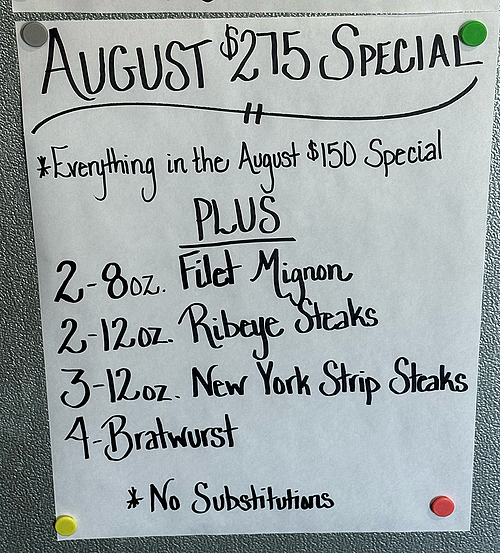 AUGUST $275 SPECIAL
*Everything in the August $150 Special
PLUS
2-8oz. Filet Mignon
2-12oz. Ribeye Steaks
3-12oz. New York Strip Steaks
4-Bratwurst
*No Substitutions